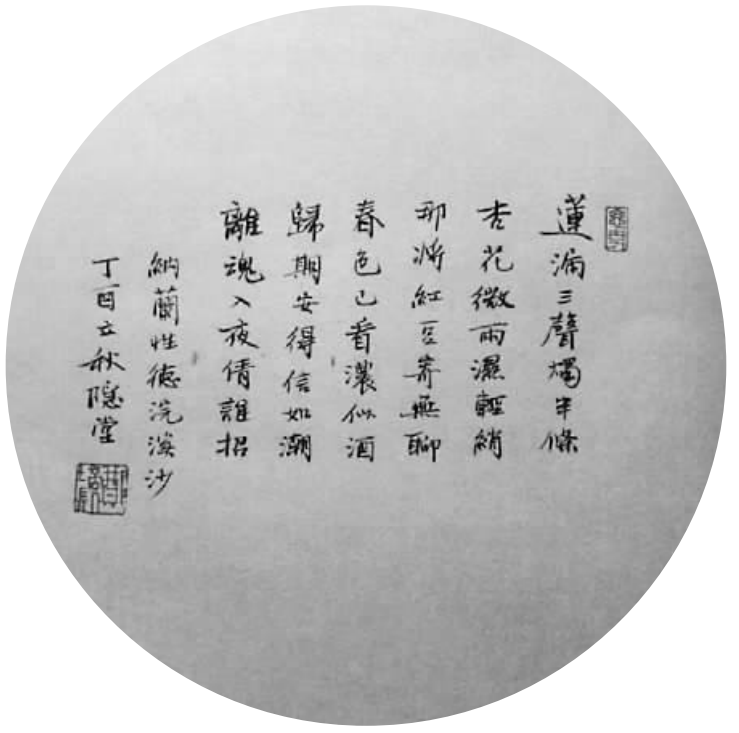 蓮漏三聲燭半條
杏花微雨濕輕綃
那將紅豆寄無聊
春色已看濃似酒
歸期安得信如潮
離魂入夜倩誰招
納蘭性德浣溪沙
丁酉立秋隱堂